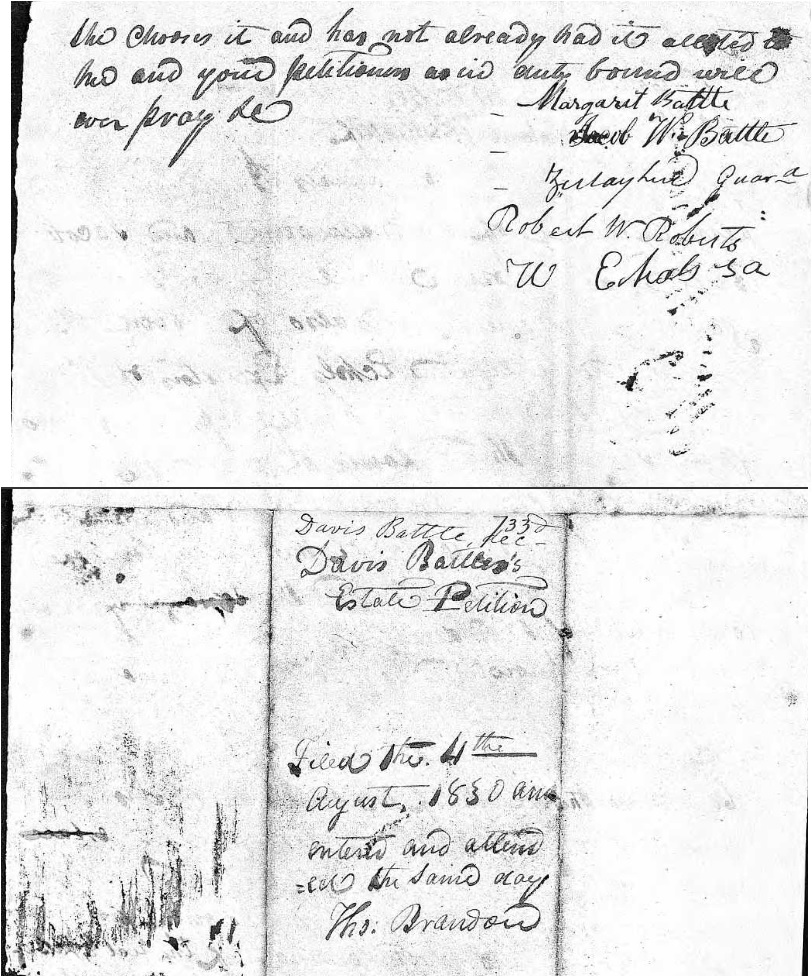 she chooses it and has not already had it allotted to
her and your petitioners as in duty bound will
ever pray &c
Margaret Battle
Jacob W. Battle
Guard
Robert W. Roberts
W Echols
Davis Battle, dec
Davis Battle's
Estate Petition
Filed the 4th
August, 1830 and
entered and attend
=ed the same day
Tho: Brandon